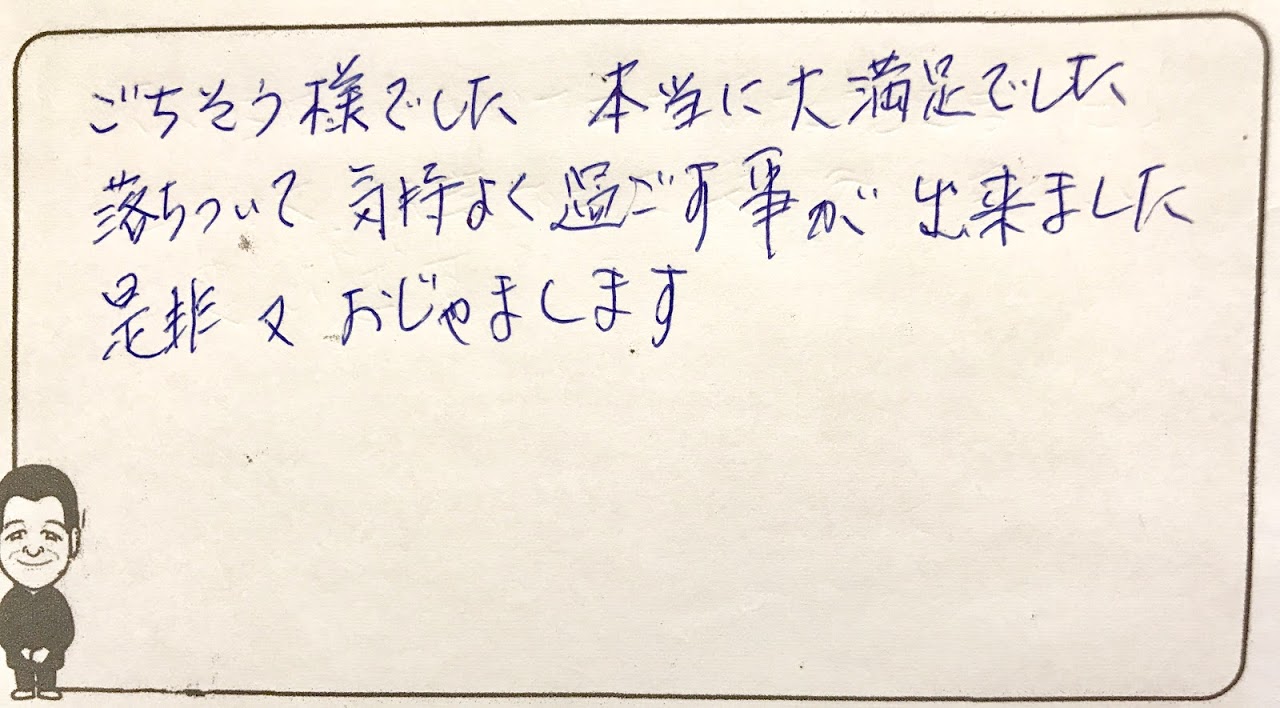 ごちそう様でした 本当に大満足でした
落ちついて 気持よく過ごす事が 出来ました
是非 又 おじゃまします